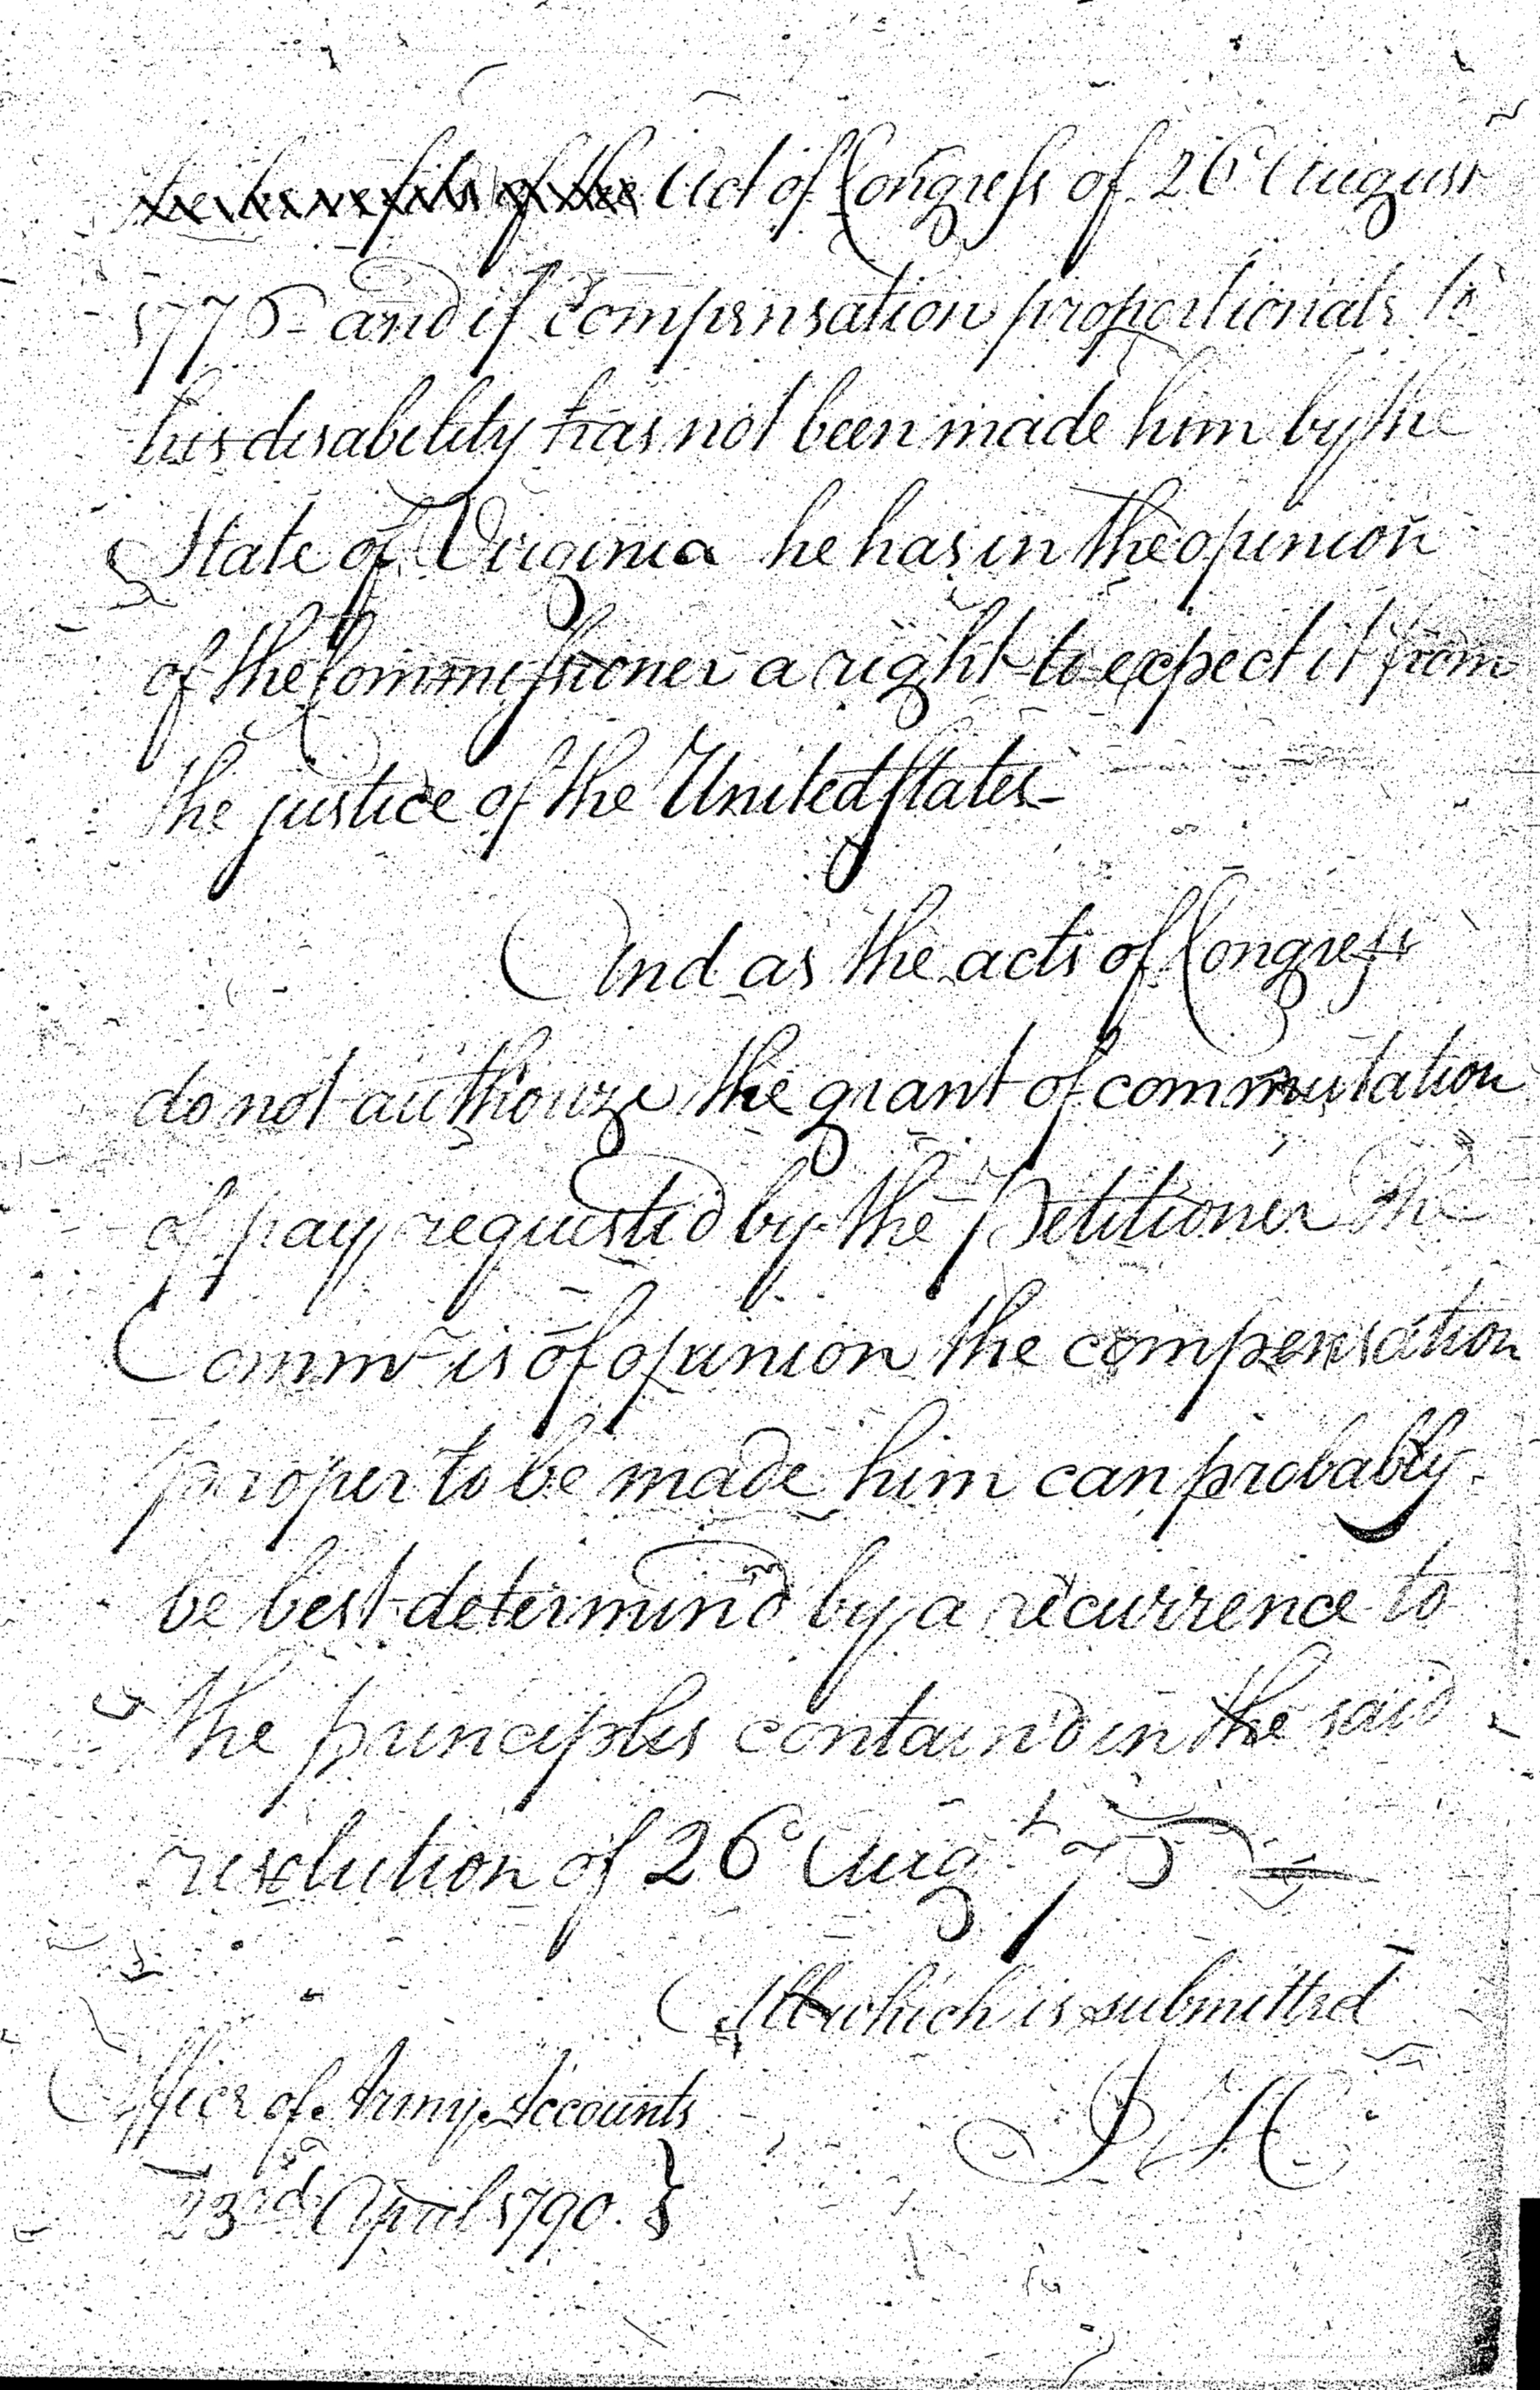 the benefits of the Act of Congress of 26 August
1776 - and if compensation proportionate to
his disability has not been made him by the
State of Virginia he has in the opinion
of the Commissioner a right to expect it from
the justice of the United States -
And as the acts of Congress
do not authorize the grant of commutation
of pay requested by the Petitioner The
Commr. is of opinion the compensation
proper to be made him can probably
be best determin'd by a recurrence to
the principles contain'd in the said
resolution of 26 Augt. 75
All which is submitted
Office of Army Accounts
23rd April 1790. }